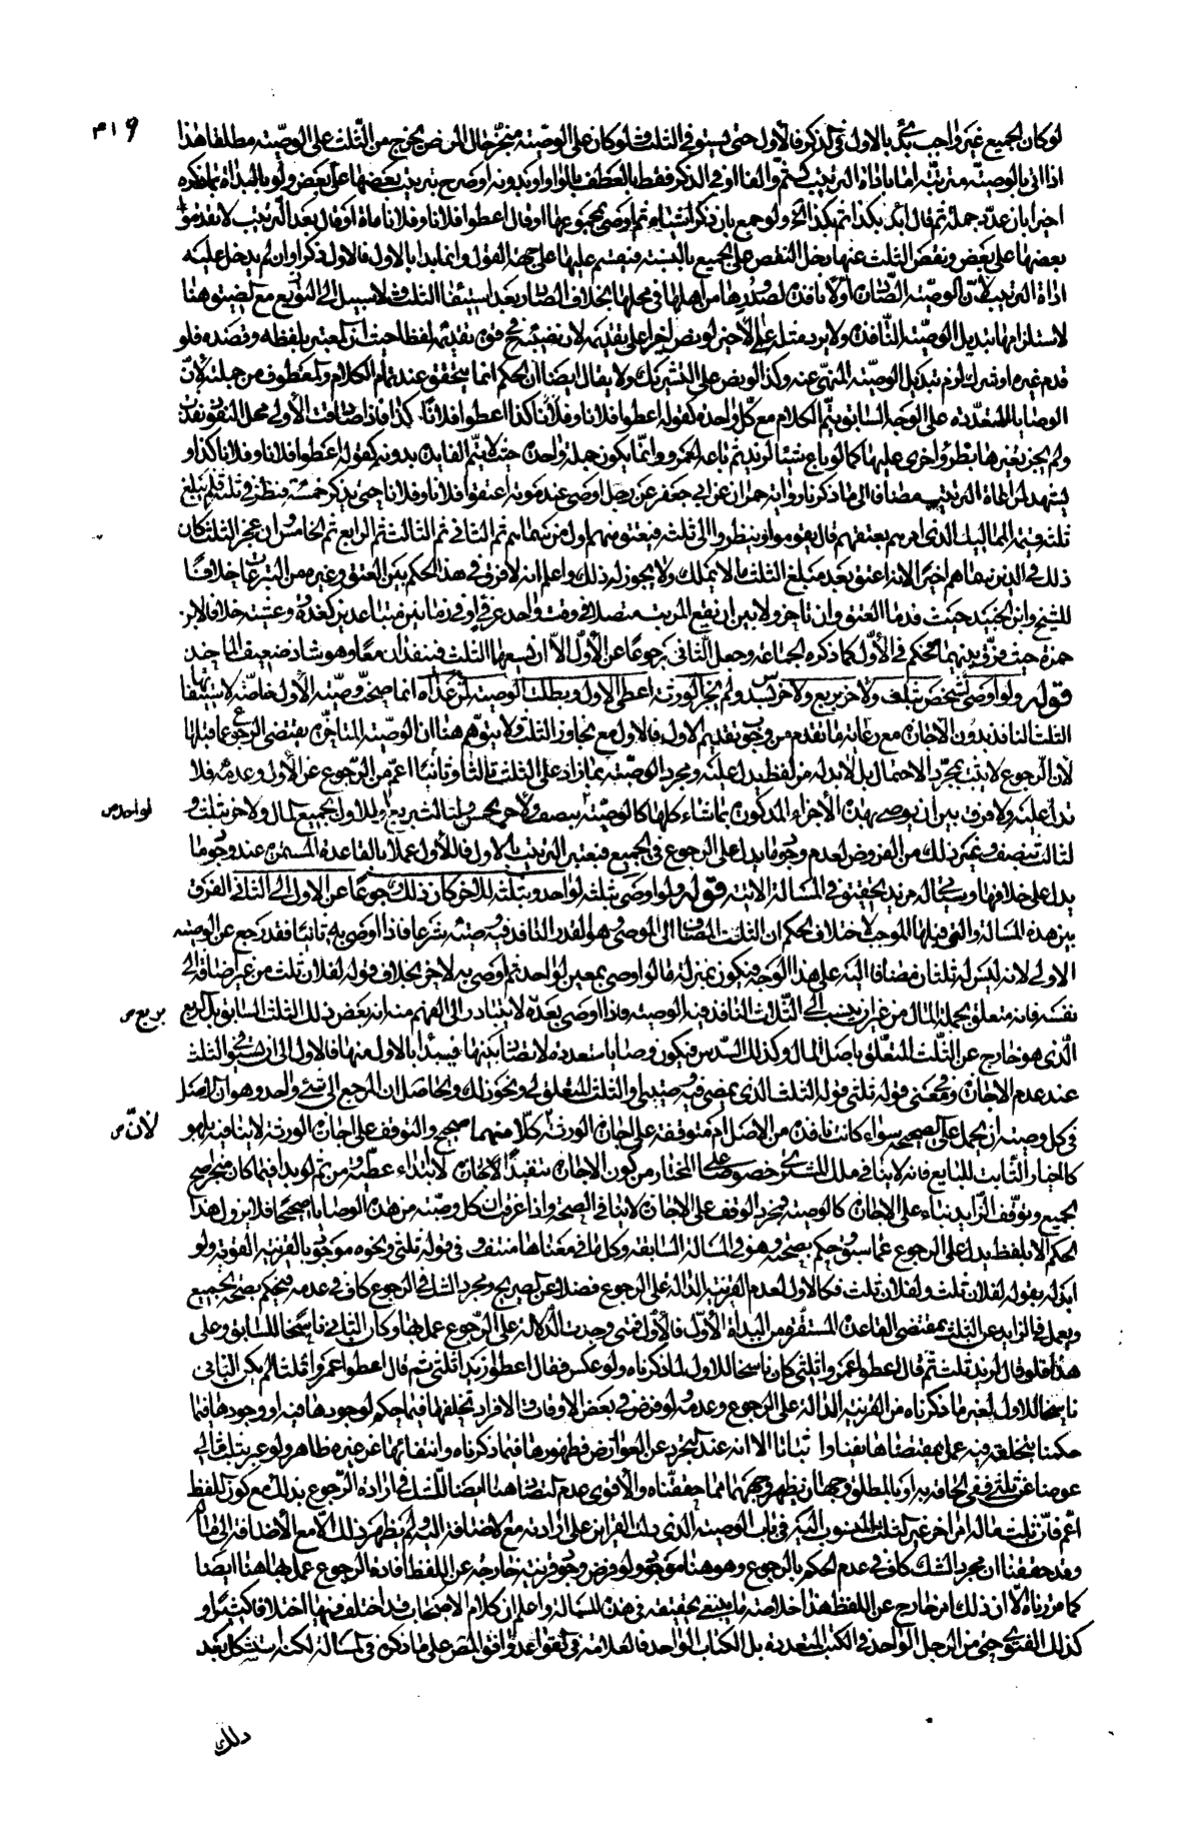 لو كان الجميع غير واجب بدئ بالاول في الذكر فالاول حتى يستوفى الثلث ولو كان على الوصية منجز حال المرض يخرج من الثلث على الوصية مطلقا هذا
اذا اتى بالوصية مرتبة اما باداة الترتيب كثم والفا او في الذكر فقط بالعطف بالواو او بدونه او صرح بترتيب بعضها على بعض ولو بالبداة بما ذكره
اخيرا بان عدد جملة ثم قال ابدء بكذا ثم بكذا الخ ولو جمع بان ذكر اشياء ثم اوصى بمجموعها او قال اعطوا فلانا وفلانا مائة او قال بعد الترتيب لا تقدموا
بعضها على بعض ونقص الثلث عنها دخل النقص على الجميع بالنسبة فيقسم عليها على جهة العول وانما بدا بالاول فالاول ذكرا وان لم يدخل عليه
اداة الترتيب لان الوصية الصادرة اولا نافذة لصدورها من اهلها في محلها بخلاف الصادر بعد استيفاء الثلث ولا سبيل الى التوزيع مع
لاستلزامها تبديل الوصية النافذة ولا يرد مثله على الاخير لو نص اخيرا على تقديمه لان نصه ح فوق تقديمه لفظا حيث ان المعتبر بلفظه وقصده فلو
قدم غيره او شرك لزم تبديل الوصية المنهي عنه وكذا لو نص على التشريك ولا يقال ايضا ان الحكم انما يتحقق عند تمام الكلام والمعطوف من جملته لان
الوصايا المتعددة على الوجه السابق يتم الكلام مع كل واحدة كقوله اعطوا فلانا وفلانا كذا اعطوا فلانا كذا فاذا صادفت الاولى محل النفوذ نفذت
ولم يجز تغيرها بطرو اخرى عليها كما لو باع شيئا لزيد ثم باعه لعمرو وانما يكون جملة واحدة حيث لا يتم الفايدة بدونه كقوله اعطوا فلانا وفلانا كذا و
يشهد لمراعاة الترتيب مضافا الى ما ذكرناه رواية حمران عن ابي جعفر عن رجل اوصى عند موته اعتقوا فلانا وفلانا حتى ذكر خمسة فنظر في ثلثه فلم يبلغ
ثلثه قيمة المماليك الذي امر بعتقهم قال يقوموا وينظروا الى ثلثه فيعتق منهم اول من سماهم ثم الثاني ثم الثالث ثم الرابع ثم الخامس وان عجز الثلث كان
ذلك في الذين سماهم اخيرا لانه اعتق بعد مبلغ الثلث ما لا يملك ولا يجوز له ذلك واعلم انه لا فرق في هذا الحكم بين العتق وغيره من التبرعات خلافا
للشيخ وابن الجنيد حيث قدما العتق وان تاخر ولا بين ان يقع المرتب متصلا في وقت واحد عرفي او في زمانين متباعدين كغدوة وعشية خلافا لابن
حمزة حيث فرق بينهما فحكم في الاول كما ذكره الجماعة وجعل الثاني رجوعا عن الاول الا ان يسعهما الثلث فينفذان معا وهو شاذ ضعيف الماخذ
قوله ولو اوصى لشخص بثلث ولاخر بربع ولاخر بسدس ولم يجز الورثة اعطي الاول وبطلت الوصية لمن عداه انما صحت وصية الاول خاصة لاستيفائها
الثلث النافذ بدون الاجازة مع رعاية ما تقدم من وجوب تقديم الاول فالاول مع تجاوز الثلث ولا يتوهم هنا ان الوصية المتاخرة يقتضي الرجوع عما قبلها
لان الرجوع لا يثبت بمجرد الاحتمال بل لابد له من لفظ يدل عليه ومجرد الوصية بما زاد على الثلث ثالثا وثانيا اعم من الرجوع عن الاول وعدمه فلا
تدل عليه ولا فرق بين ان يوصي بهذه الاجزاء المذكورة بما شاء كلها كالوصية بنصف ولاخر بخمس ولثالث بربع ولو اول الجميع المال ولاخر بثلث و
لثالث بنصف وغير ذلك من الفروض لعدم وجود ما يدل على الرجوع في الجميع فيعتبر الترتيب بالاول فالاول عملا بالقاعدة المستمرة عند وجود ما
يدل على خلافها وسياتي له مزيد تحقيق في المسالة الاتية قوله ولو اوصى بثلثه لواحد وبثلثه للاخر كان ذلك رجوعا عن الاول الى الثاني الفرق
بين هذه المسالة والتي قبلها الموجب لاختلاف الحكم ان الثلث المضاف الى الموصي هو القدر النافذ فيه وصيته شرعا فاذا اوصى به ثانيا فقد رجع عن الوصية
الاولى لانه ليس له ثلثان مضافا اليه على هذا الوجه فيكون بمنزلة ما لو اوصى بمعين لواحد ثم اوصى به لاخر بخلاف قوله لفلان ثلث من غير اضافة الى
نفسه فانه متعلق بجملة المال من غير ان ينسب الى الثلاث النافذ فيه الوصية فاذا اوصى بعده لا يتبادر الى الفهم منه انه بعض ذلك الثلث السابق بل الربع
الذي هو خارج عن الثلث المتعلق باصل المال وكذلك السدس فيكون وصايا متعددة لا تضاد بينها فيبدأ بالاول منها فالاول الى ان يستوفى الثلث
عند عدم الاجازة وفي معنى قوله ثلثي قوله الثلث الذي يمضي فيه وصيتي والثلث المتعلق بي ونحو ذلك والحاصل ان المرجع الى شيء واحد وهو ان الاصل
في كل وصية ان يحمل على الصحيحة سواء كانت نافذة من الاصل ام متوقفة على اجازة الورثة كلا منهما صحيح والتوقف على اجازة الورثة لا ينافيه بل هو
كالخيار الثابت للبايع فانه لا ينافي ملك المشتري خصوصا على المختار من كون الاجازة تنفيذا لاجازة لا ابتداء عطية ومن ثم لو بدا فيما كان منجزا صح
الجميع وتوقف الزايد بناء على الاجازة كالوصية ومجرد الوقف على الاجازة لا ينافي الصحة واذا عرفت ان كل وصية من هذه الوصايا صحيحة فلا يزول هذا
الحكم الا بلفظ يدل على الرجوع عما سبق وحكم بصحته وهو في المسالة السابقة وكل ما في معناها منتف وفي قوله ثلثي ونحوه موجود بالقرينة القوية ولو
ابدله بقوله لفلان ثلث ولفلان ثلث فكالاول لعدم القرينة الدالة على الرجوع فضلا عن الصريح ومجرد الشك في الرجوع كاف في عدمه فيحكم بصحة الجميع
ويعمل في الزايد عن الثلث بمقتضى القاعدة المستقرة من البداة بالاول فالاول فمتى وجدت الدلالة على الرجوع عمل بها وكان الثاني ناسخا للسابق وعلى
هذا فلو قال لزيد ثلث ثم قال اعطوا عمرا ثلثي كان ناسخا للاول لما ذكرناه ولو عكس فقال اعطوا زيدا ثلثي ثم قال اعطوا عمروا ثلثا لم يكن الثاني
ناسخا للاول لعين ما ذكرناه من القرينة الدالة على الرجوع وعدمه ولو فرض في بعض الاوقات والافراد تخلفها فيما حكم لوجودها فيه او وجودها فيما
حكمنا بتخلفه فيه عمل بمقتضاها نفيا واثباتا الا انه عند التجرد عن العوارض فظهورها فيما ذكرناه وانتفائها عن غيره ظاهر ولو عبر بثلث مالي
عوضا عن ثلثي ففي الحاقه به او بالمطلق وجهان يظهر وجههما مما حققناه والاقوى عدم التضاد هنا ايضا للشك في ارادة الرجوع بذلك مع كون اللفظ
اعم فان ثلث ماله امر اخر غير الثلث المنسوب اليه في باب الوصية الذي دلت القرائن على ارادته مع الاضافة اليه ولم تظهر ذلك الا مع الاضافة الى
وقد حققنا ان مجرد الشك كاف في عدم الحكم بالرجوع وهو هنا موجود ولو فرض وجود قرينة خارجة عن اللفظ افادة الرجوع عمل بها هنا ايضا
كما مر زيادة الا ان ذلك امر خارج عن اللفظ هذا خلاصة ما ينبغي تحقيقه في هذه المسالة واعلم ان كلام الاصحاب قد اختلف فيها اختلافا كثيرا و
كذلك الفتوى حتى من الرجل الواحد في الكتب المتعددة بل الكتاب الواحد فالعلامة في القواعد وافق المص على ما ذكره في المسالة لكنه استشكل بعد
لواحد ص
بربع ص
لان ص
ذلك